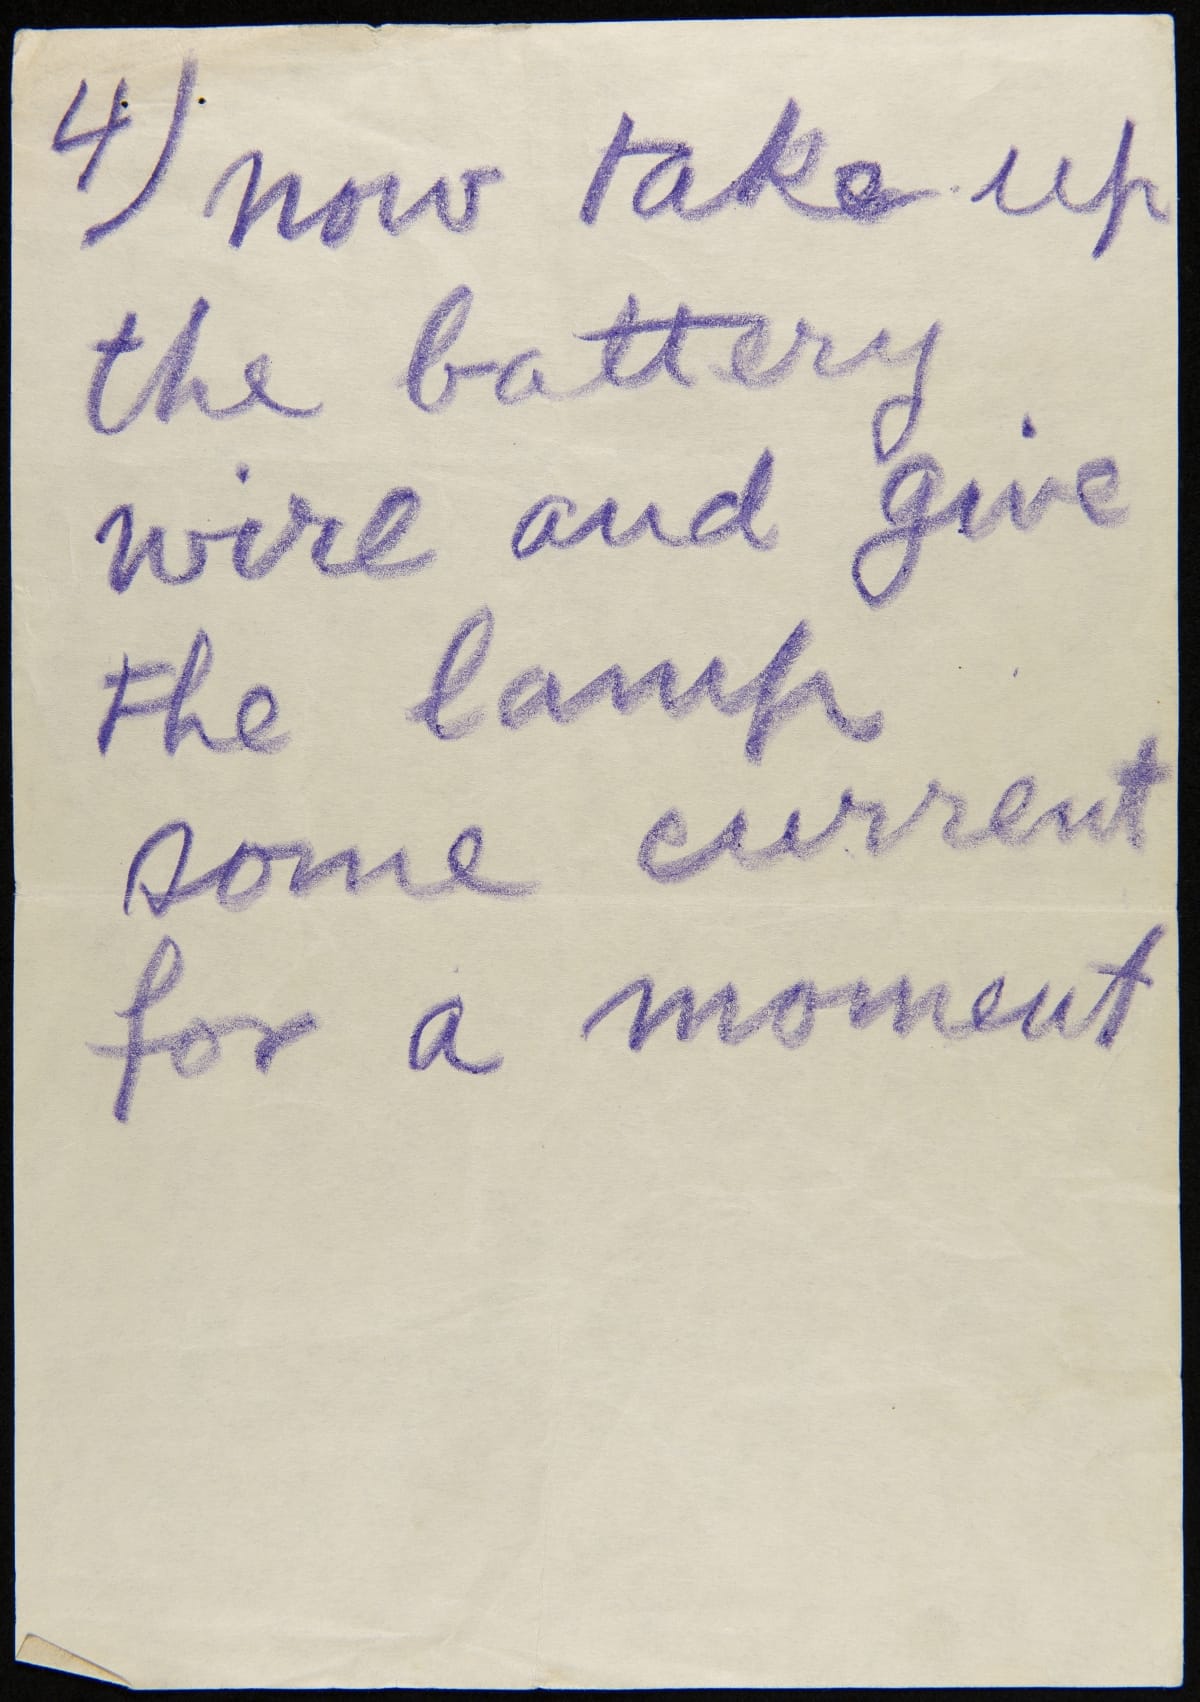 4) now take up
the battery
wire and give
the lamp
some current
for a moment